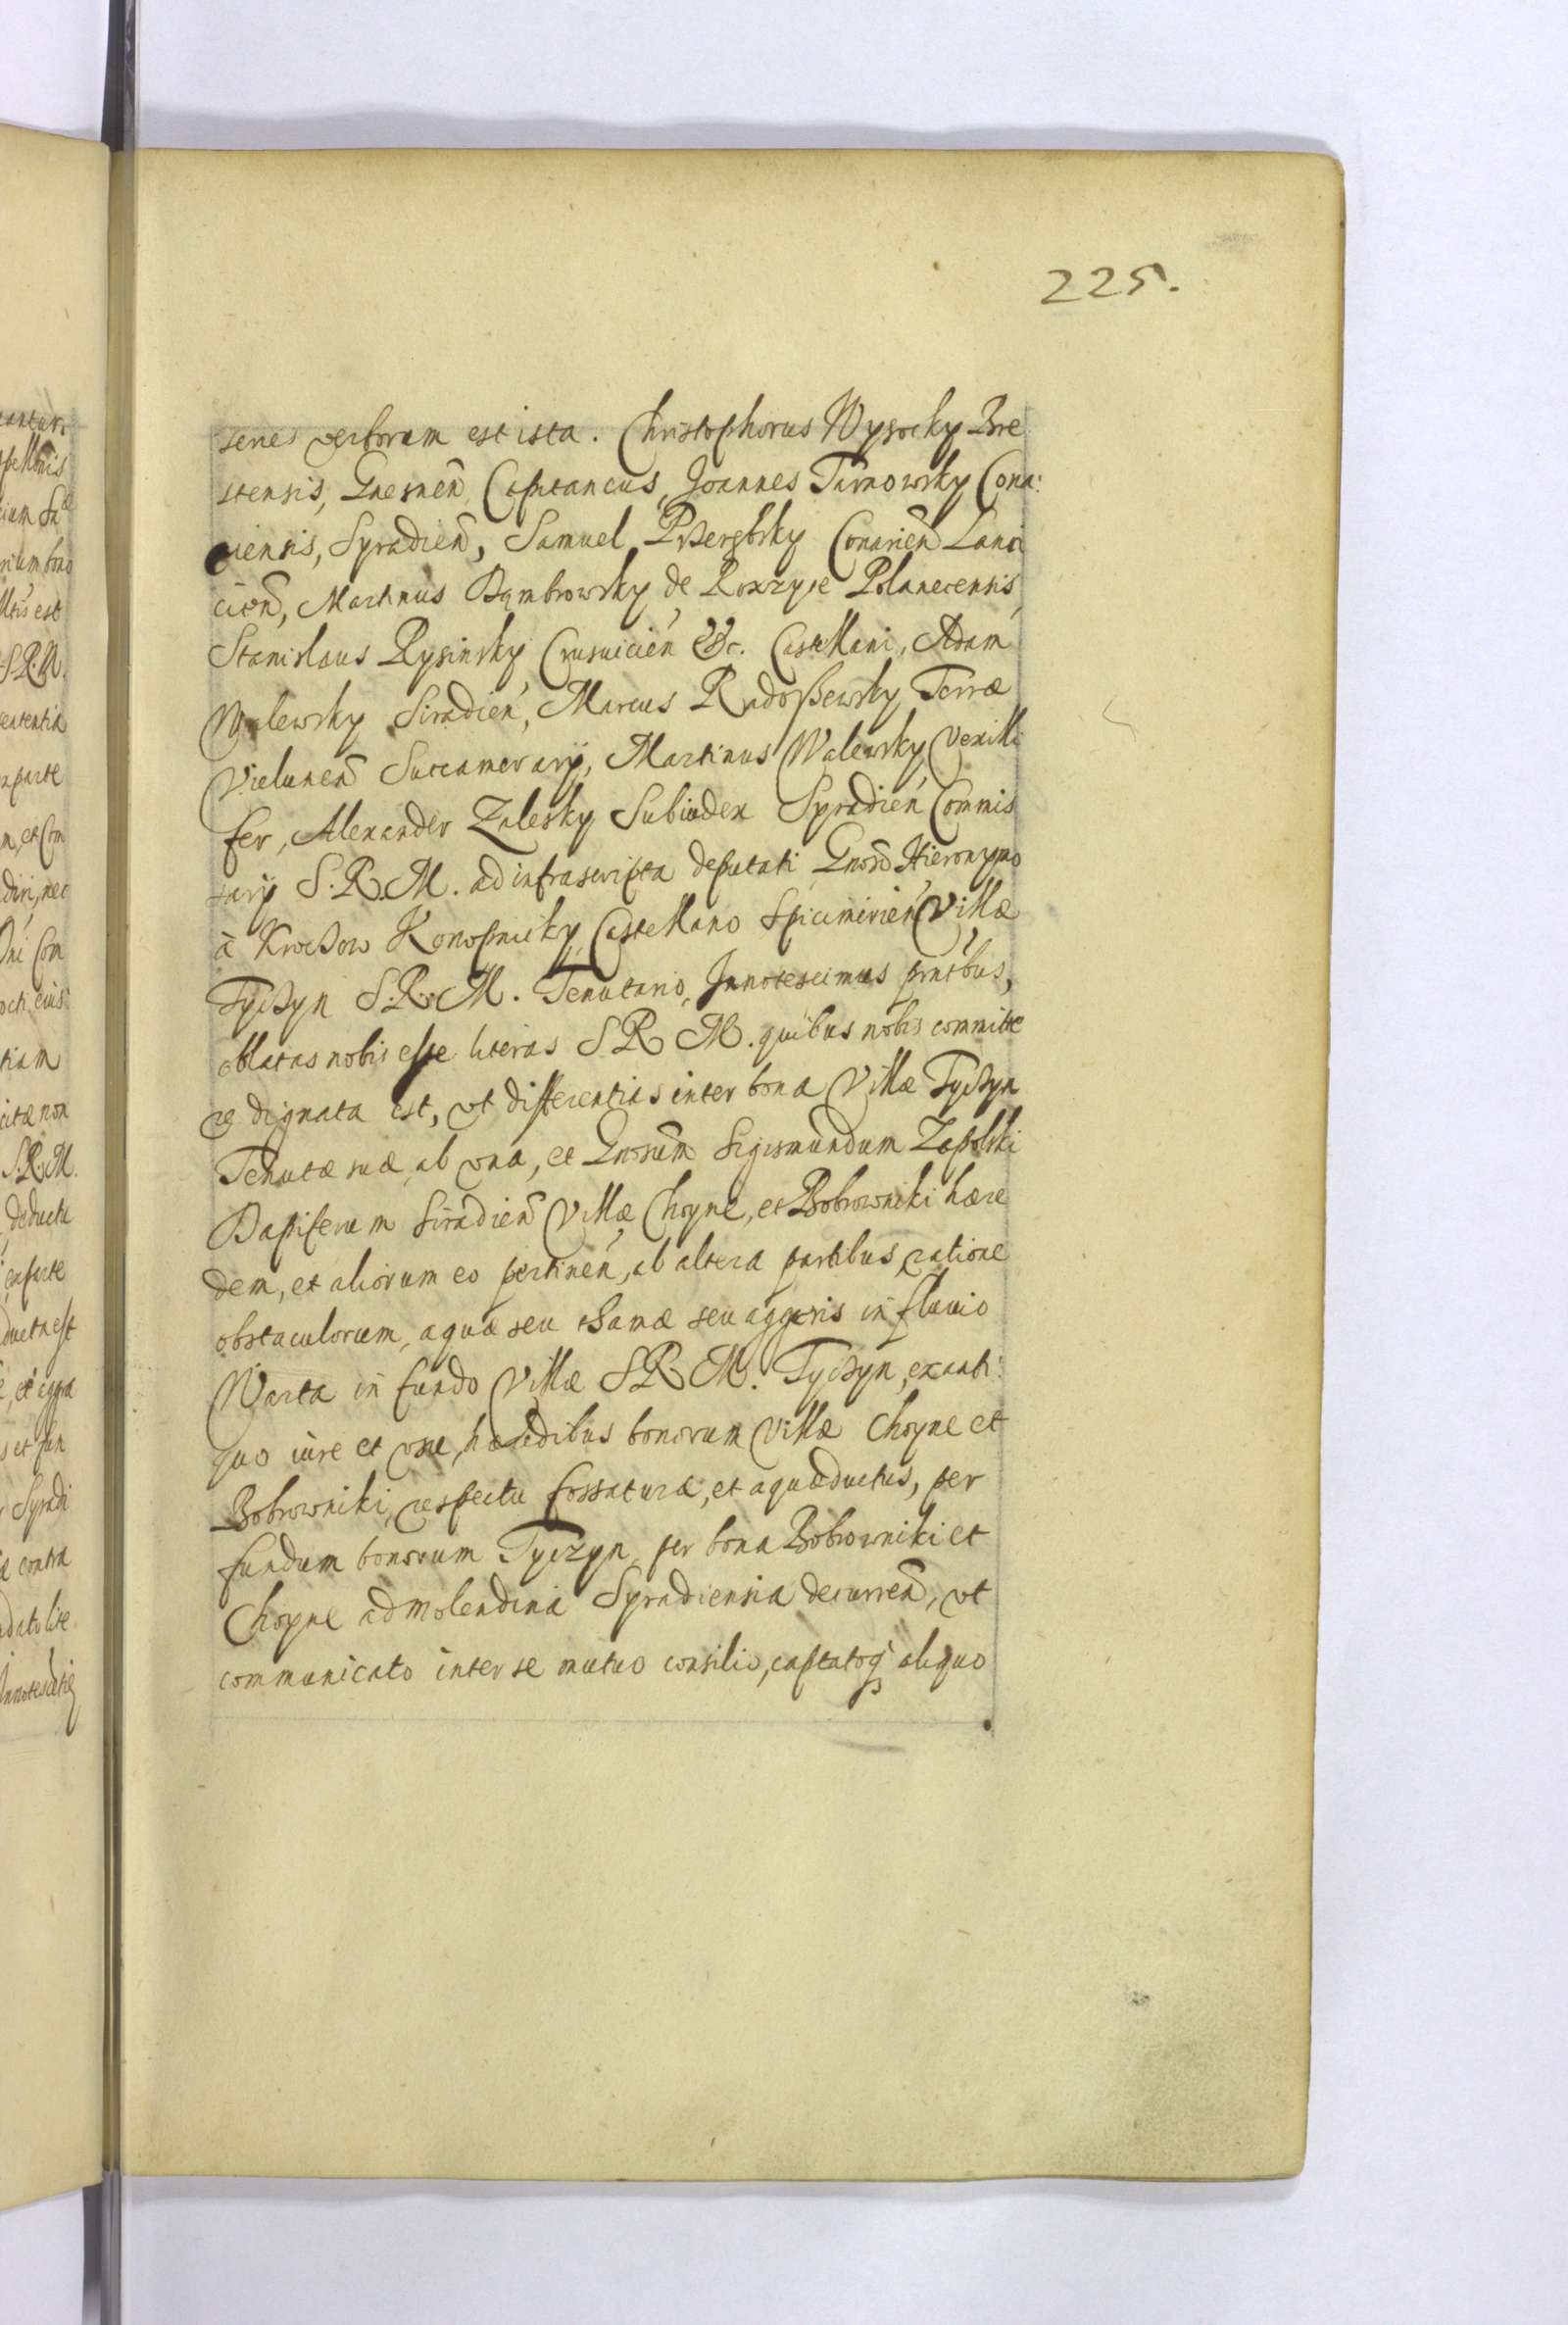 225.
series verborum est ista. Christophorus Wysocky Bre
stensis, Gnesnen̄ Capitaneus, Joannes Tarnowsky Cona:
riensis, Syradien̄, Samuel Conarien̄ Lanci
cien̄, Martinus Dąmbrowsky de Polanecensis,
Stanislaus Rysinsky Crusuicien̄ &c. Castellani, Adam
Walewsky Siradien̄, Marcus Radoßewsky Terræ
Vielunen̄ Succamerarij, Martinus Walewsky Vexilli
fer, Alexander Zalesky Subiudex Syradien̄ Commis
sarij S. R. M. ad infrascripta deputati Gnoso Hieronymo
à Krocßow Konopnicky Castellano Spicimirien̄ Villæ
Tycßyn S. R. M. Tenutario, Innotescimus pn̄tibus,
oblatas nobis esse literas S R M. quibus nobis committe
re dignata est, vt differentias inter bona Villæ Tycßyn
Tenutæ suæ, ab vna, et Gnosum Sigismundum Zapolski
Dapiferum Siradien̄ Villæ Choyne, et Bobrowniki hære
dem, et aliorum eo pertinen̄, ab altera partibus, ratione
obstaculorum, aquæ seu tßamæ seu aggeris in fluuio
Warta in fundo Villæ S R M. Tycßyn, ex anti:
quo iure et vsu, hæredibus bonorum Villæ Choyne et
Bobrowniki, respectu fossaturæ, et aquæductus, per
fundum bonorum Tyczyn, per bona Bobrowniki et
Choyne ad molendina Syradiensia decurren̄, vt
communicato inter se mutuo consilio, captatoq̃ aliquo